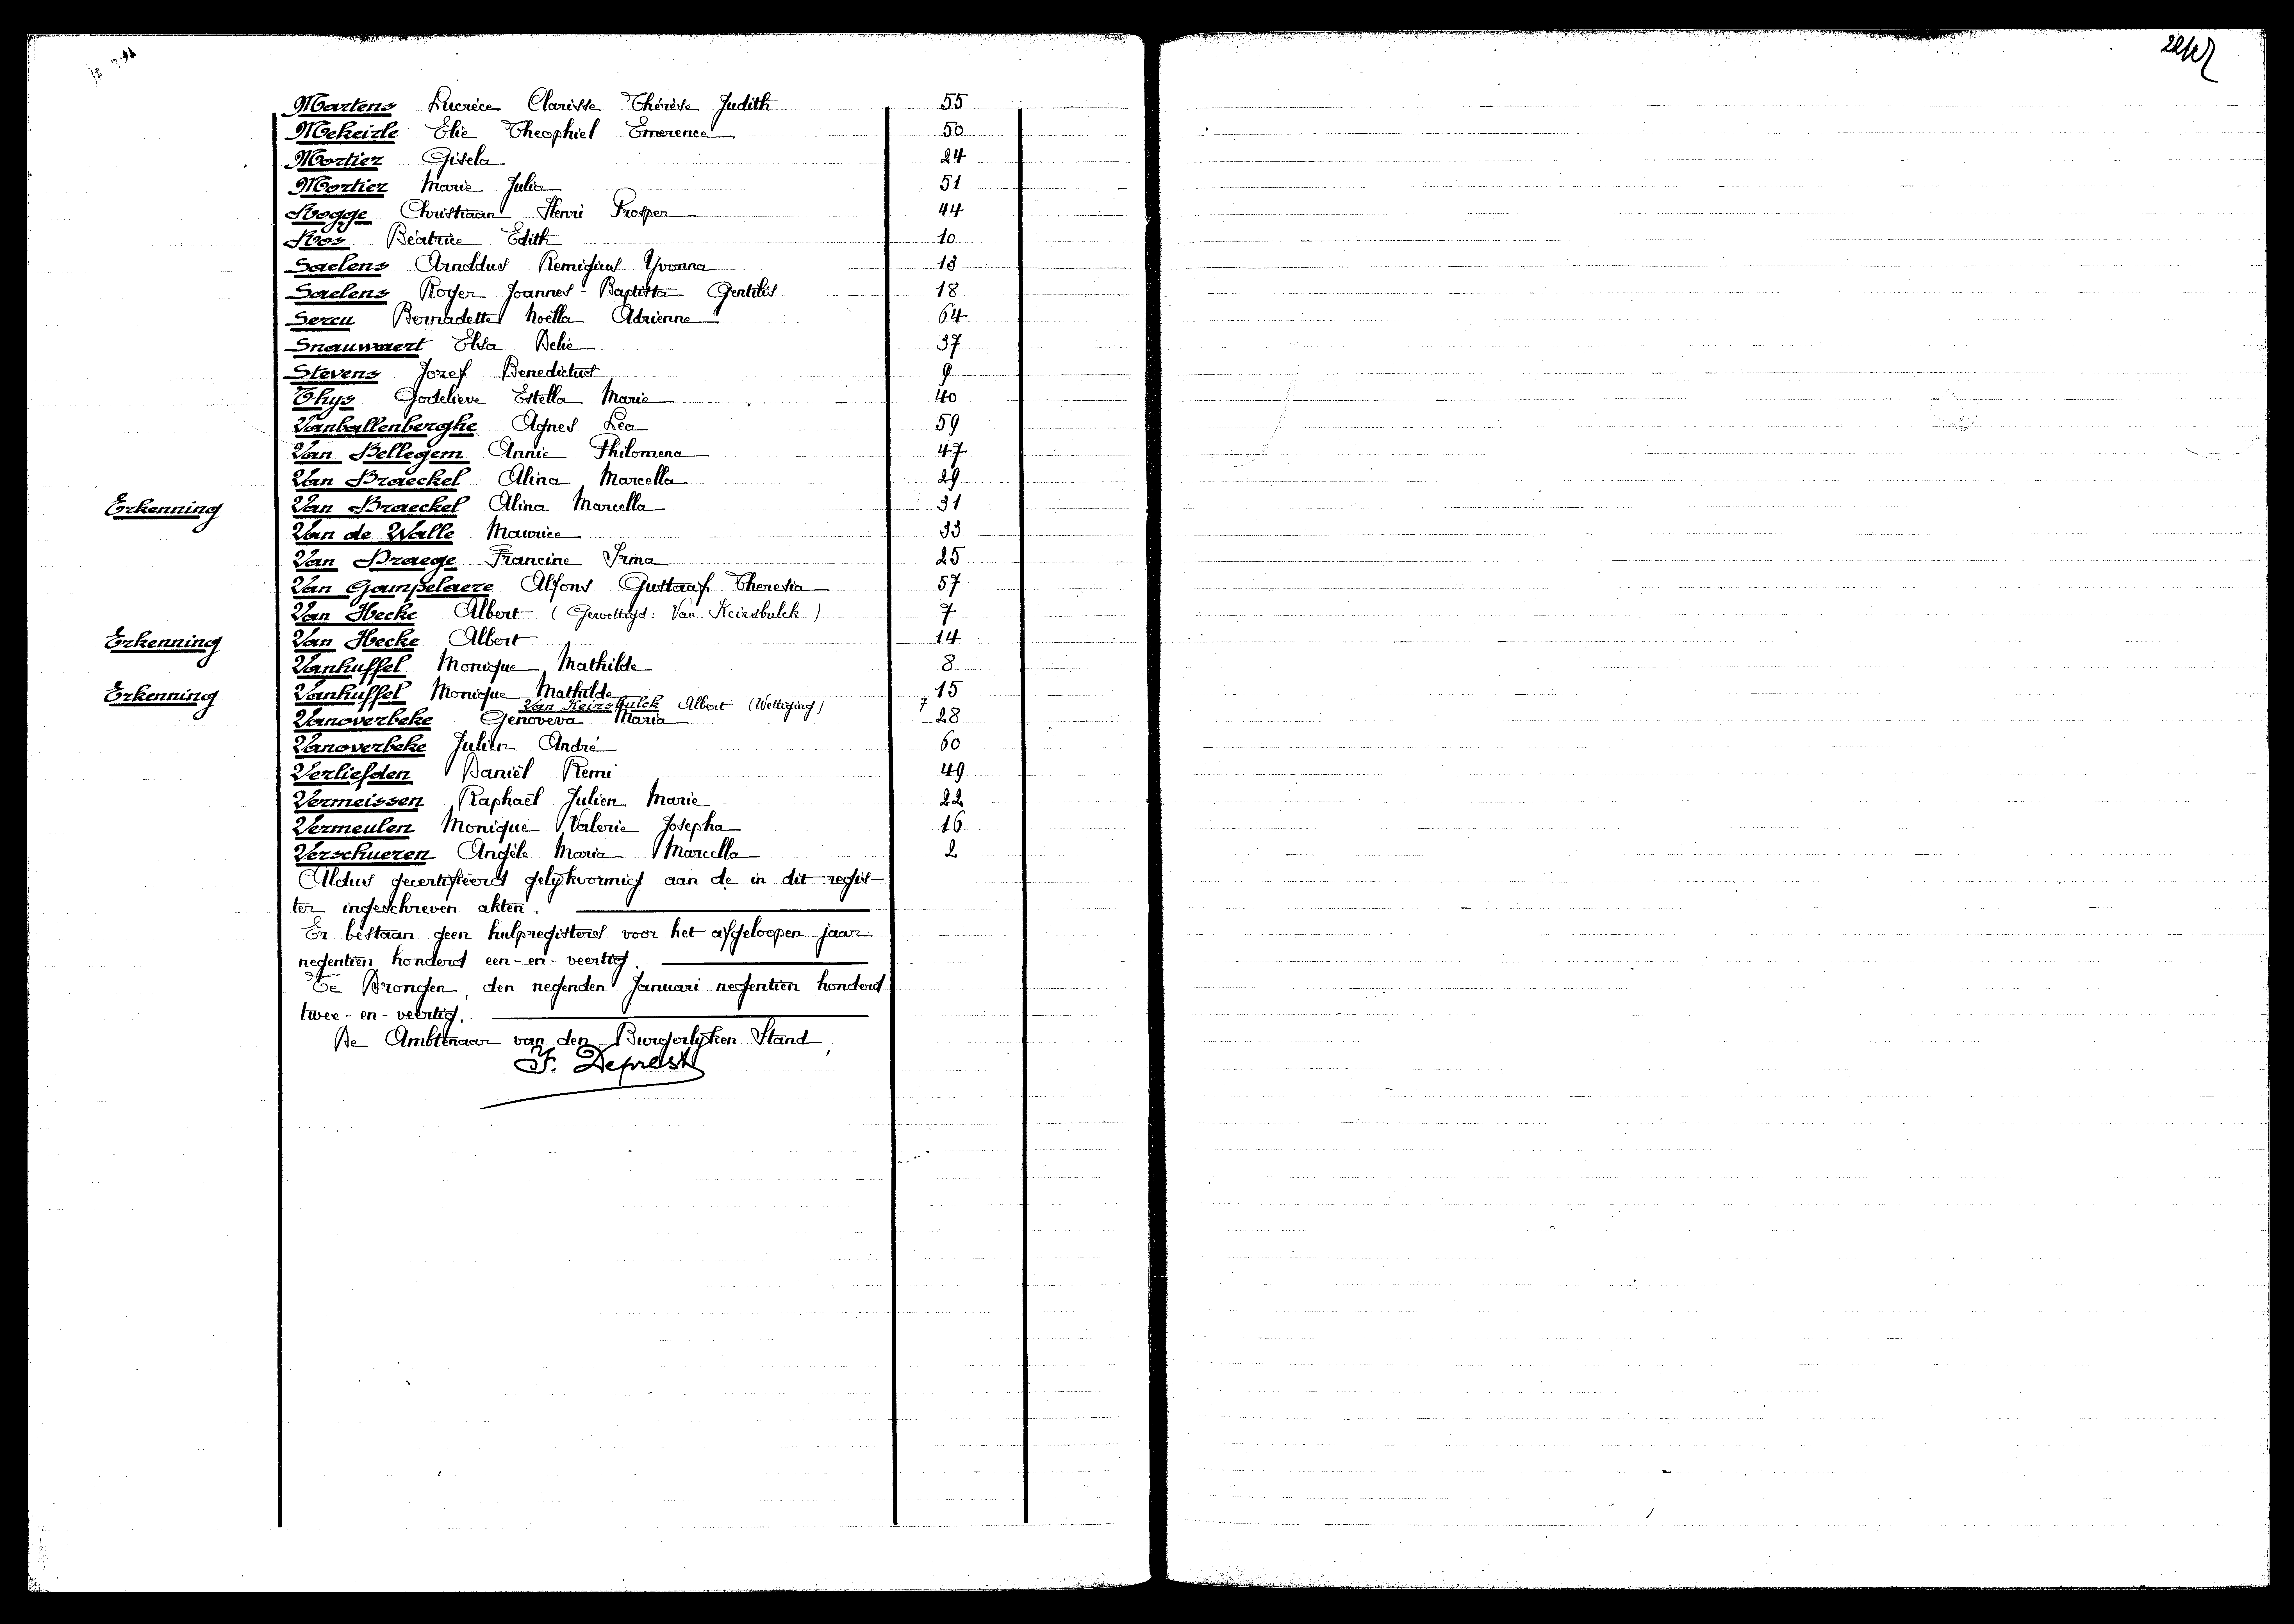 Martens Lucréce Clarisse Thérèse Judith 55
Mekeirle Elie Theophiel Emerence 50
Mortier Gisela 24
Mortier Marie Julia 51
Rogge Christiaan Henri Prosper 44
Ros Béatrice Edith 10
Saelens Arnoldus Remigius Yvonna 13
Saelens Roger Joannes-Baptista Gentilis 18
Sercu Bernadette Noëlla Adrienne 64
Snauwaert Elsa Delie 37
Stevens Jozef Benedictus 9
Thys Godelieve Estella Marie 40
Vanballenberghe Agnes Lea 59
Van Bellegem Annie Philomena 47
Van Braeckel Alina Marcella 29
Erkenning Van Braeckel Alina Marcella 31
Van de Walle Maurice 33
Van Draege Francine Irma 25
Van Gampelaere Alfons Gustaaf Theresia 57
Van Hecke Albert (Gewettigd: Van Keirsbulck) 7
Erkenning Van Hecke Albert 14
Vanhuffel Monique Mathilde 8
Erkenning Vanhuffel Monique Mathilde 15
Van Keirsbulck Albert (Wettiging) 7
Vanoverbeke Genoveva Maria 28
Vanoverbeke Julien André 60
Verliefden Daniël Remi 49
Vermeissen Raphaël Julien Marie 22
Vermeulen Monique Valerie Josepha 16
Verschueren Angèle Maria Marcella 2
Aldus gecertifieerd gelijkvormig aan de in dit regis-
ter ingeschreven akten.
Er bestaan geen hulpregisters voor het afgeloopen jaar
negentien honderd een-en-veertig.
Te Drongen, den negenden Januari negentien honderd
twee-en-veertig.
De Ambtenaar van den Burgerlijken Stand,
F. Deprest